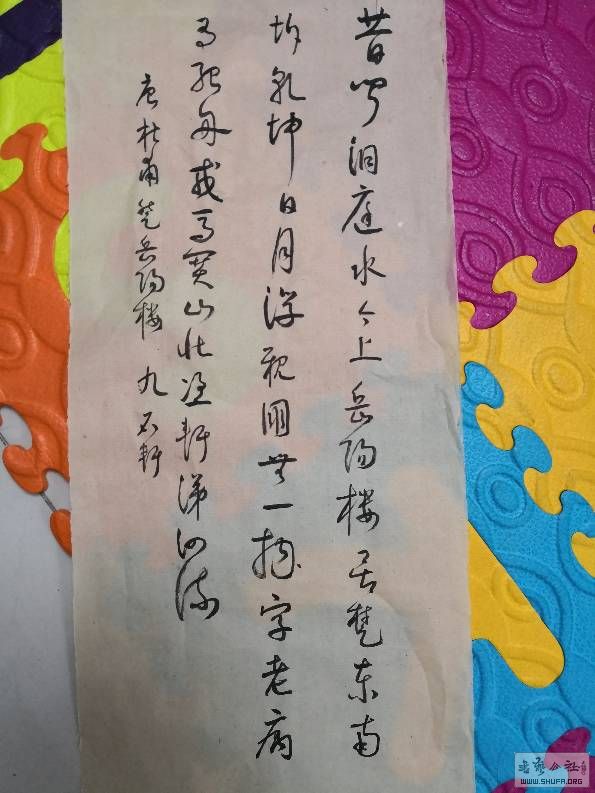 昔闻洞庭水今上岳阳楼吴楚东南
坼乾坤日月浮亲朋无一字老病
有孤舟戎马关山北凭轩涕泗流
唐杜甫登岳阳楼 九轩
书艺公社
WWW.SHUFA.ORG